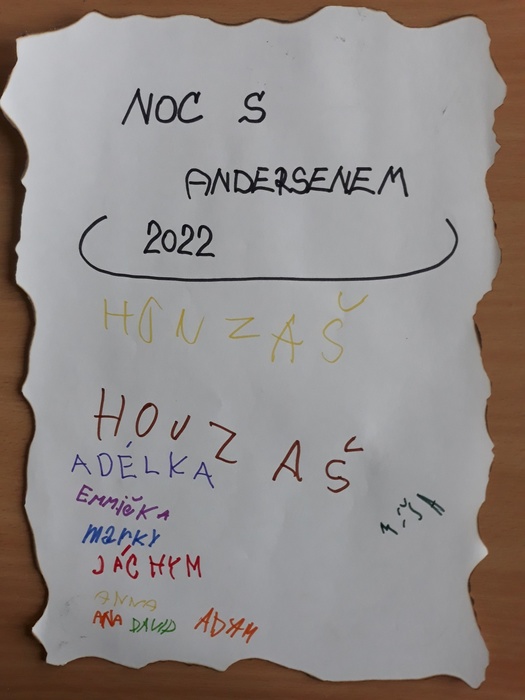 NOC S
ANDERSENEM
2022
HONZA Š
HOUZ A Š
ADÉLKA
EMMIČKA
MARKY
JÁCHYM
MÍŠA
ANNA
ANA DAVID ADAM